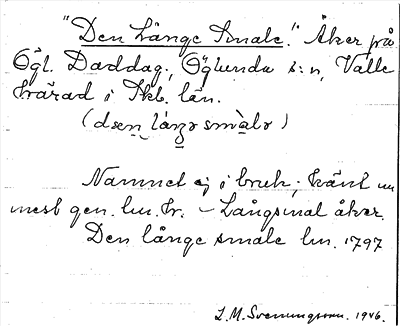 "Den Långe Smale." Åker på
Ögl. Daddag., Öglunda s:n, Valle
härad i Skb. län.
(dæn låŋə smàlə)
Namnet ej i bruk; känt nu
mest gen. lm. hr. – Långsmal åker.
Den långe smale lm. 1797
L. M. Svenungsson. 1946.